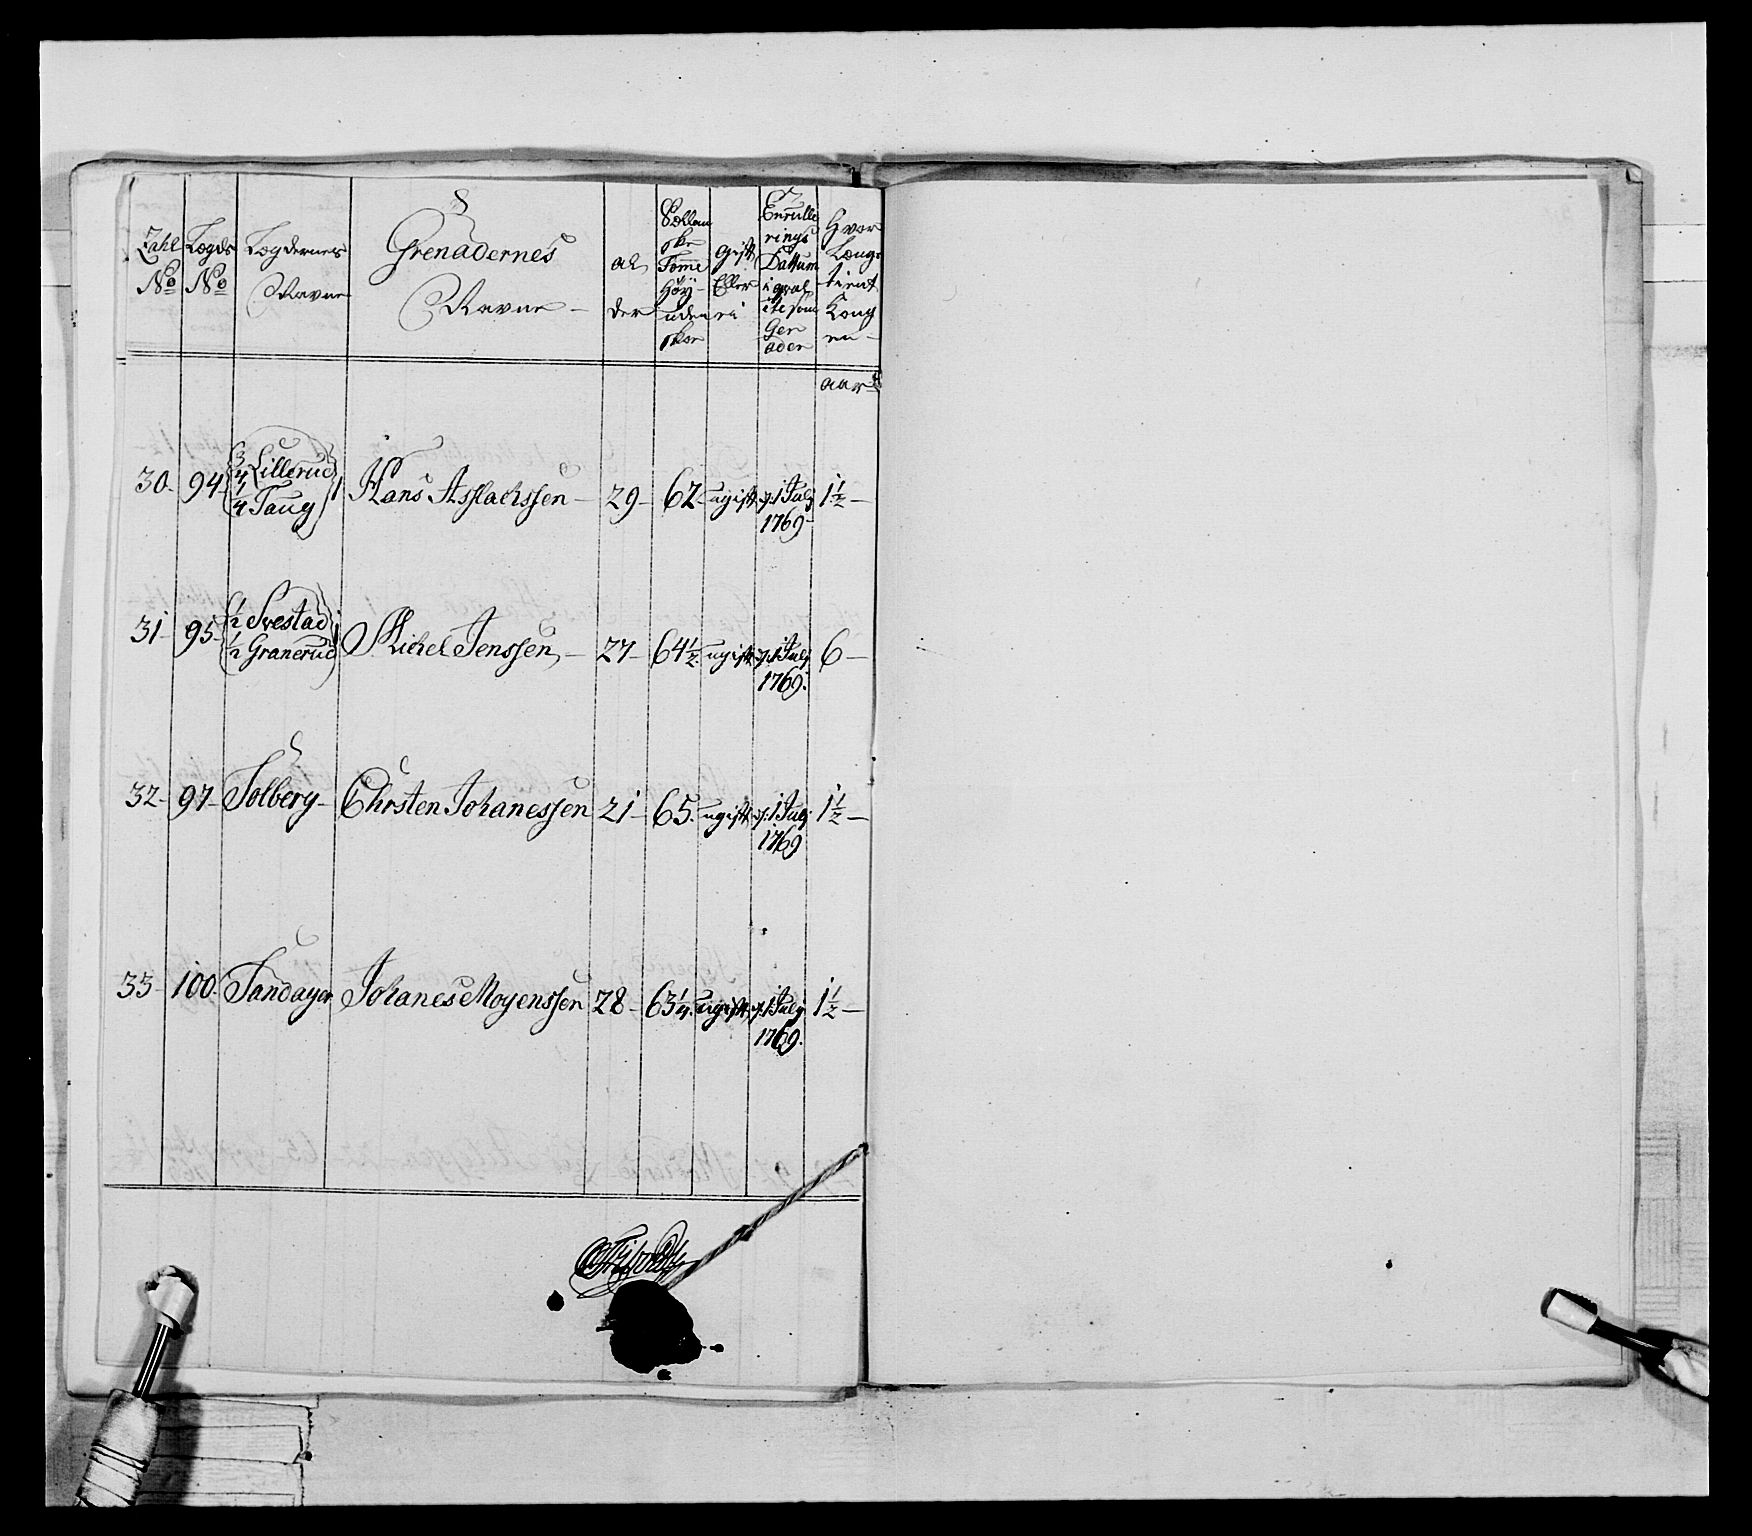 Zahl No | Lægds No | Lægdernes Navne | Grenadernes Navne | al der | Sællandske Tomme Høy uden skoe | Gift Eller ei | Enrulle rings Dattum i qvalite som Gren ader | Hvor Længe tient Kongen
aar
30 | 94 | 3/4 Lillerud 1/4 Taug | Hans Asslachssen | 29 | 62 | ugift | d: 1 July 1769 | 1 1/2
31 | 95 | 1/2 Svestad 1/2 Granerud | Michel Jenssen | 27 | 64 1/2 | ugift | d: 1 July 1769. | 6
32 | 97 | Solberg | Christen Johanessen | 21 | 65. | ugift | d: 1 July 1769 | 1 1/2
33 | 100. | Sandager | Johanes Mogenssen | 28 | 63 1/4. | ugift | d: 1 July 1769. | 1 1/2